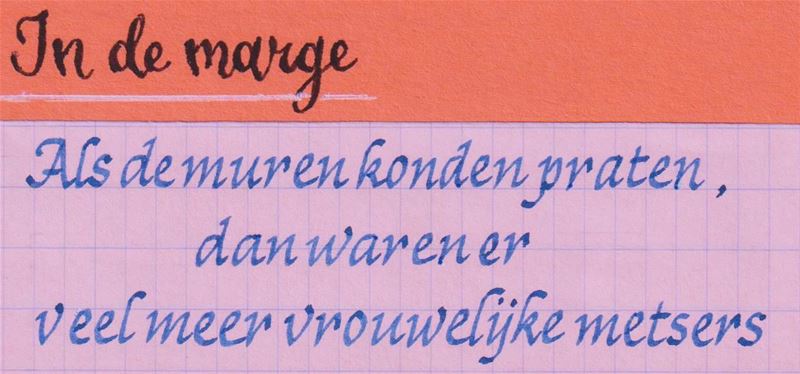 In de marge
Als de muren konden praten,
dan waren er
veel meer vrouwelijke metsers